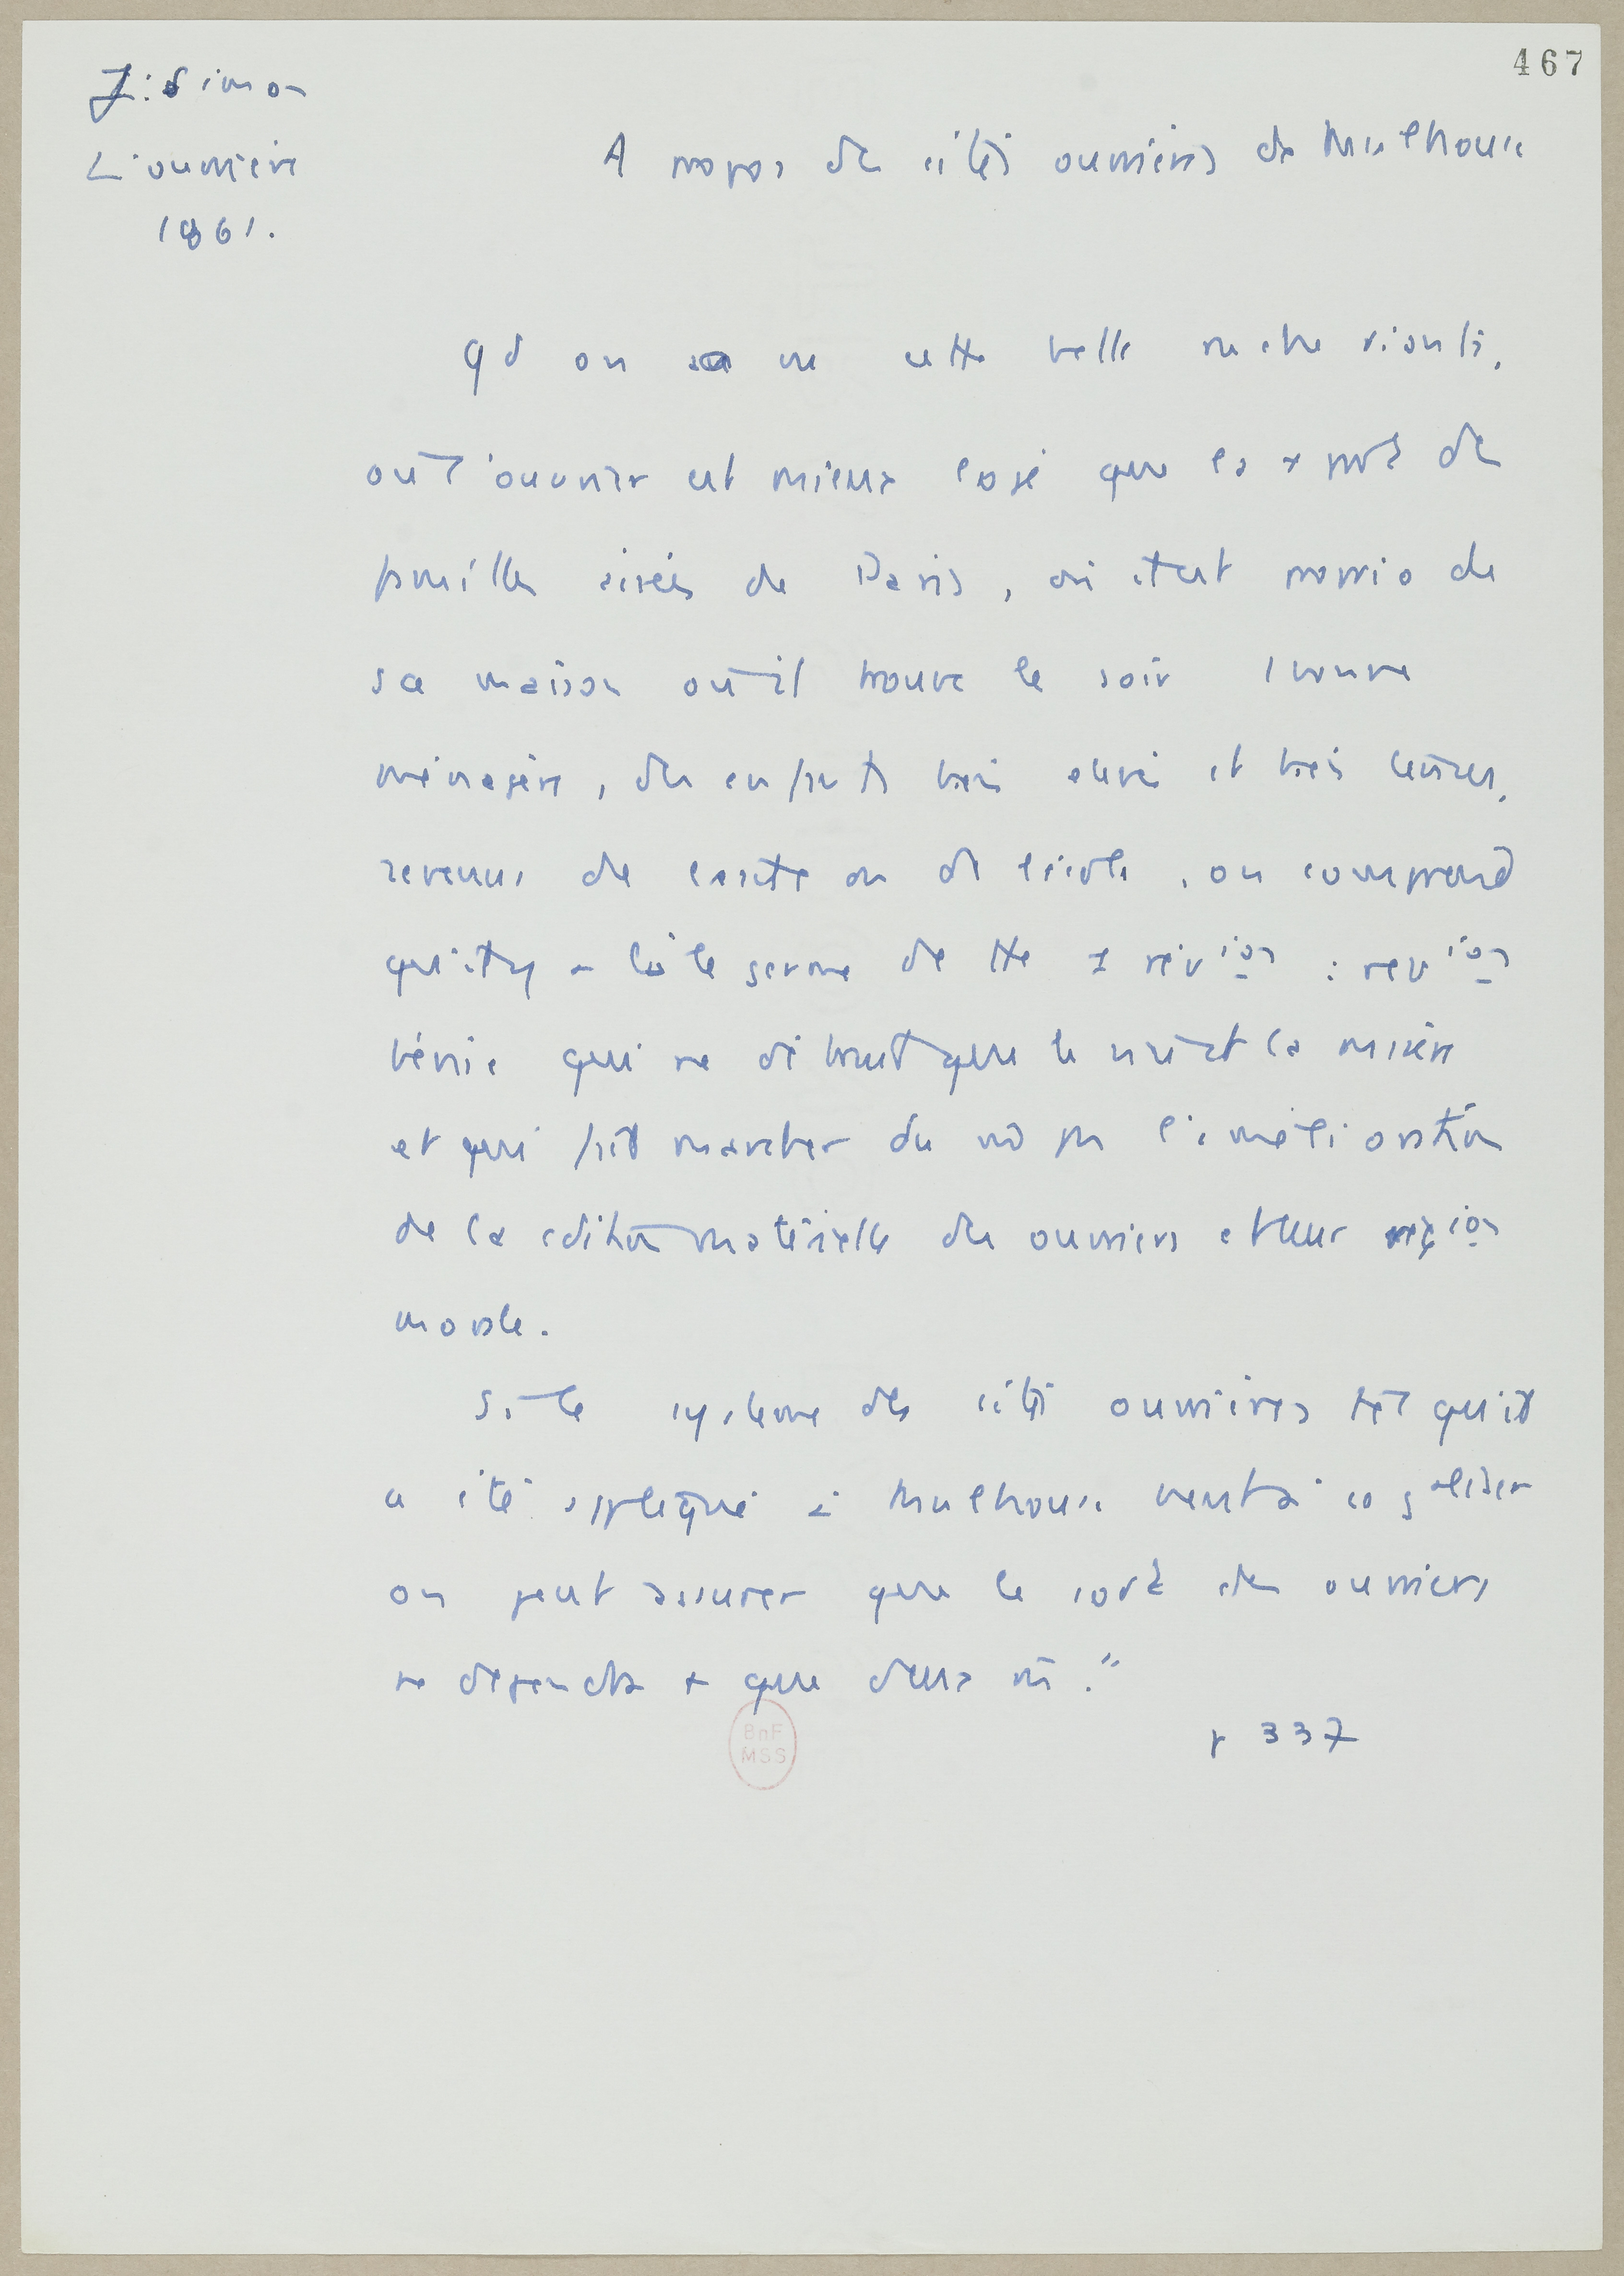 467
J. Simon
L'ouvrière
1861.
A propos des cités ouvrières de Mulhouse
qd on a vu cette belle ruche riante,
où l'ouvrier est mieux logé que la + part des
familles aisées de Paris, où il est proprio de
sa maison où il trouve le soir 1 bonne
ménagère, des enfants bien élevés et bien tenus,
revenus de l'école, on comprend
qu'il y a là le germe de tte 1 rév ion : rév ion
bénie qui ne détruit que le vice et la misère
et qui fait marcher du m p l'amélioration
de la cdition matérielle des ouvriers et leur
morale.
Si le système des cités ouvrières tel qu'il
a été appliqué à Mulhouse vient à se gnaliser
on peut assurer que le sort des ouvriers
ne dépendra + que d'eux m."
p 337
BnF
MSS